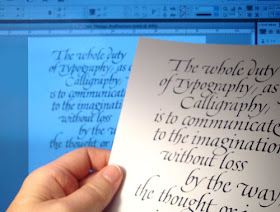 The whole duty
of Typography, as
Calligraphy,
is to communicate
to the imagination
without loss
by the
the thought
The whole duty
of Typography, as
Calligraphy,
is to communicate
to the imagination
without loss
by the way
the thought or